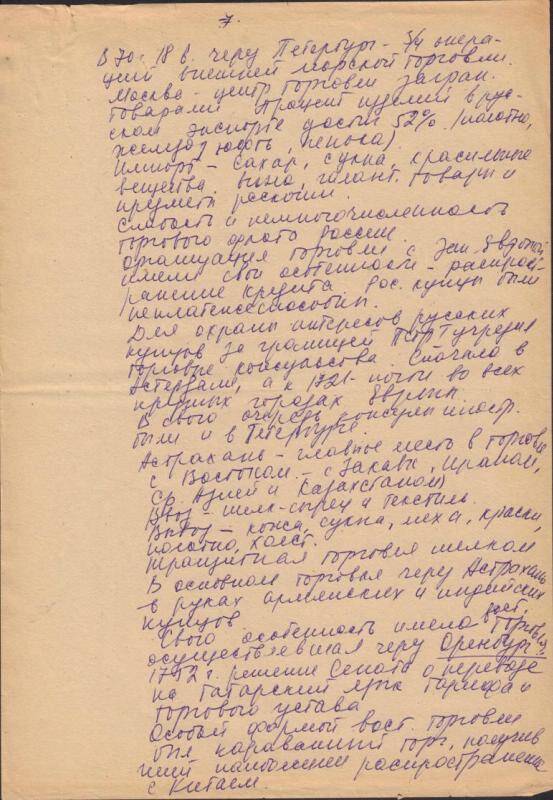 7.
В 70г. 18 в. через Петербург - 3/4 опера-
ций внешней морской торговли.
Москва - центр торговли загран.
товарами. Процент изделий в рус-
ском экспорте достиг 52% (полотно,
железо, юфть, пенька)
Импорт - сахар, сукна, красильные
вещества, вина, галант. товары и
предметы роскоши.
Слабость и немногочисленность
торгового флота России.
Организация торговли с Зап. Европой
имела свои особенности - распрост-
ранение кредита. Рос. купцы были
неплатежеспособны.
Для охраны интересов русских
купцов за границей Петр I учредил
торговые консульства. Сначала в
Амстердаме, а к 1721 - почти во всех
крупных городах Европы.
В свою очередь консулы иностр.
были и в Петербурге.
Астрахань - главное место в торговле
с Востоком - с Закавк., Ираном,
Ср. Азией и Казахстаном)
Ввоз - шелк-сырец и текстиль.
Вывоз - кожа, сукна, меха, краски,
полотно, холст.
Транзитная торговля шелком
В основном торговля через Астрахань
в руках армянских и индийских
купцов
Свою особенность имела вост. торговля
осуществлявшая через Оренбург.
1752 г. решение Сената о переводе
на татарский язык тарифа и
торгового устава
Особой формой вост. торговли
был караванный торг, получив
ший наибольшее распространение
с Китаем.